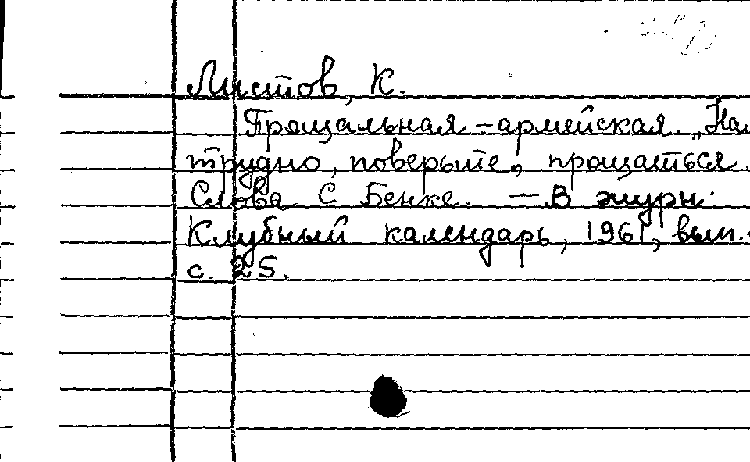 Листов, К.
Прощальная-армейская. „На
трудно, поверьте, прощаться.
Слова С Бенке. — В журн.
Клубный календарь, 1961, вып.
с. 25.